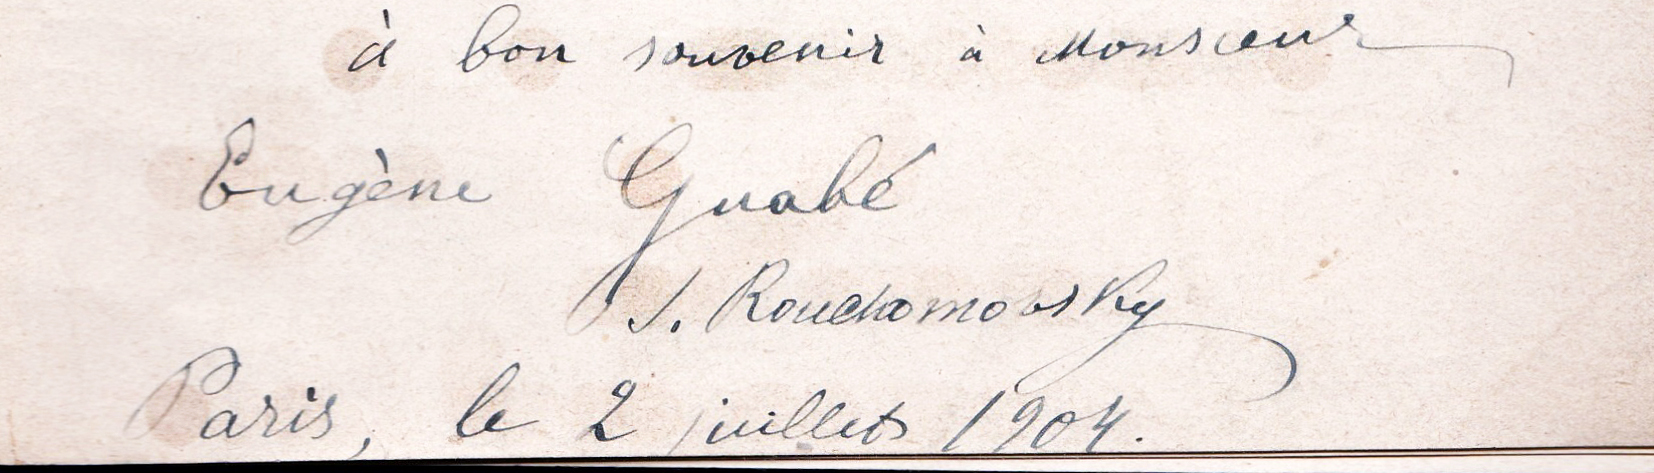 à bon souvenir à Monsieur
Eugène Guabé
I. Rouchomowsky
Paris, le 2 juillet 1904.